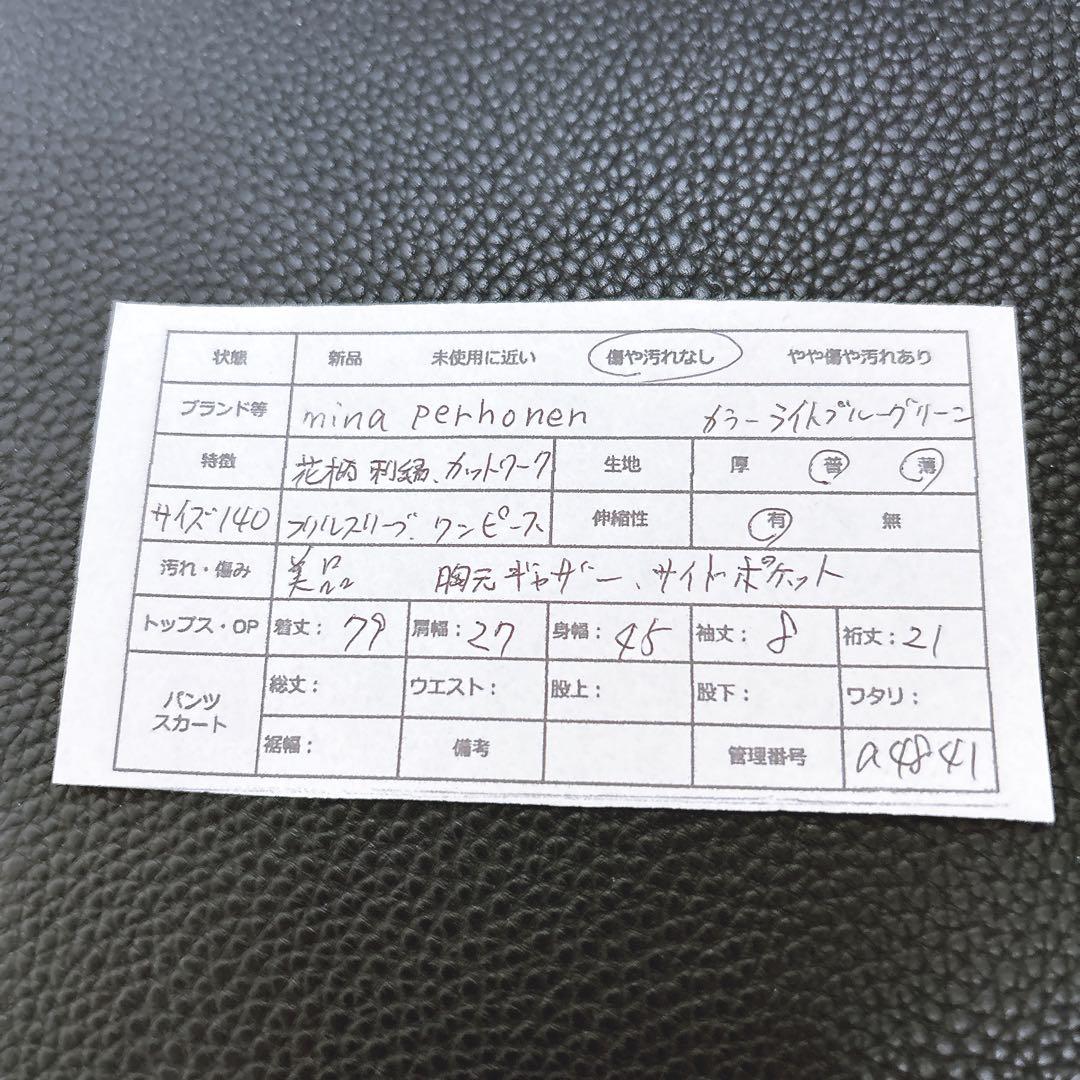 状態 新品 未使用に近い 傷や汚れなし やや傷や汚れあり
ブランド等 mina perhonen カラーライトブルーグリーン
特徴 花柄刺繍、カットワーク 生地 厚 普 薄
サイズ140 フリルスリーブ、ワンピース 伸縮性 有 無
汚れ・傷み 美品 胸元ギャザー、サイドポケット
トップス・OP 着丈:79 肩幅:27 身幅:45 袖丈:8 裄丈:21
パンツ スカート 総丈: ウエスト: 股上: 股下: ワタリ:
裾幅: 備考 管理番号 a4841